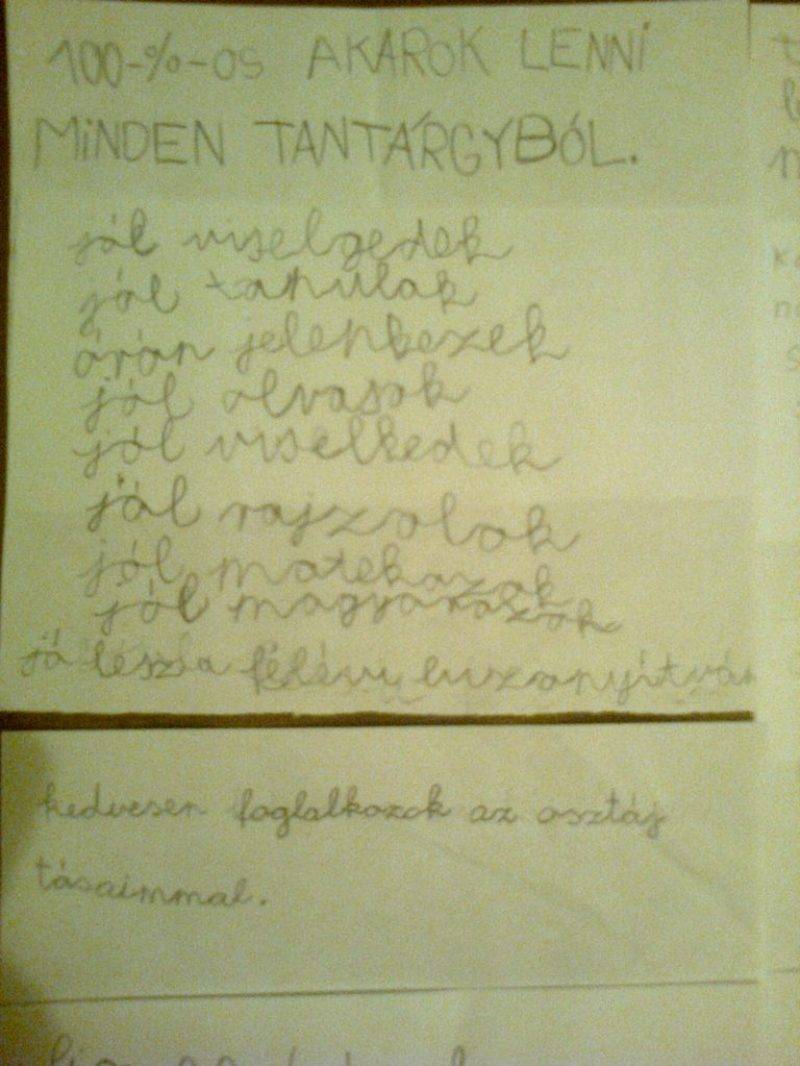 100-%-os AKAROK LENNi
MiNDEN TANTÁRGYBÓL.
jól viselgedek
jól tanulak
órán jelenkezek
jól olvasok
jól viselkedek
jól rajzolok
jól matekozok
jól magyarozok
jó lesz a félévi
kedvesen foglalkozok az osztáj
tásaimmal.